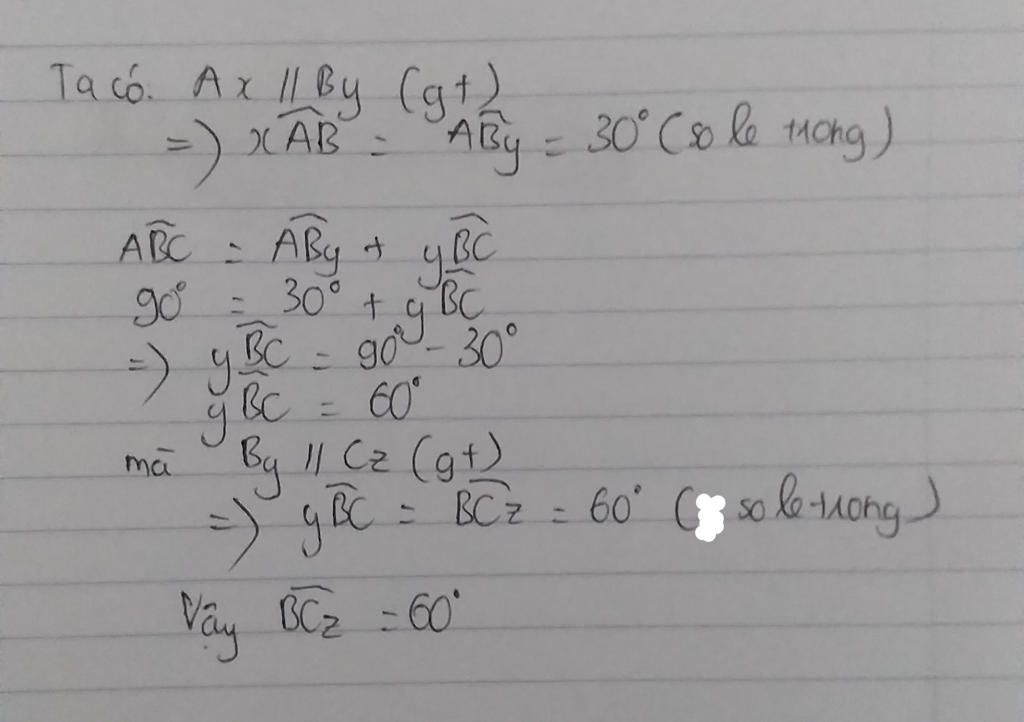 Ta có. Ax // By (gt)
=> xÂB = AB̂y = 30° (so le trong)
AB̂C = AB̂y + yB̂C
90° = 30° + yB̂C
=> yB̂C = 90° - 30°
yB̂C = 60°
mà By // Cz (gt)
=> yB̂C = BĈz = 60° (so le trong)
Vậy BĈz = 60°